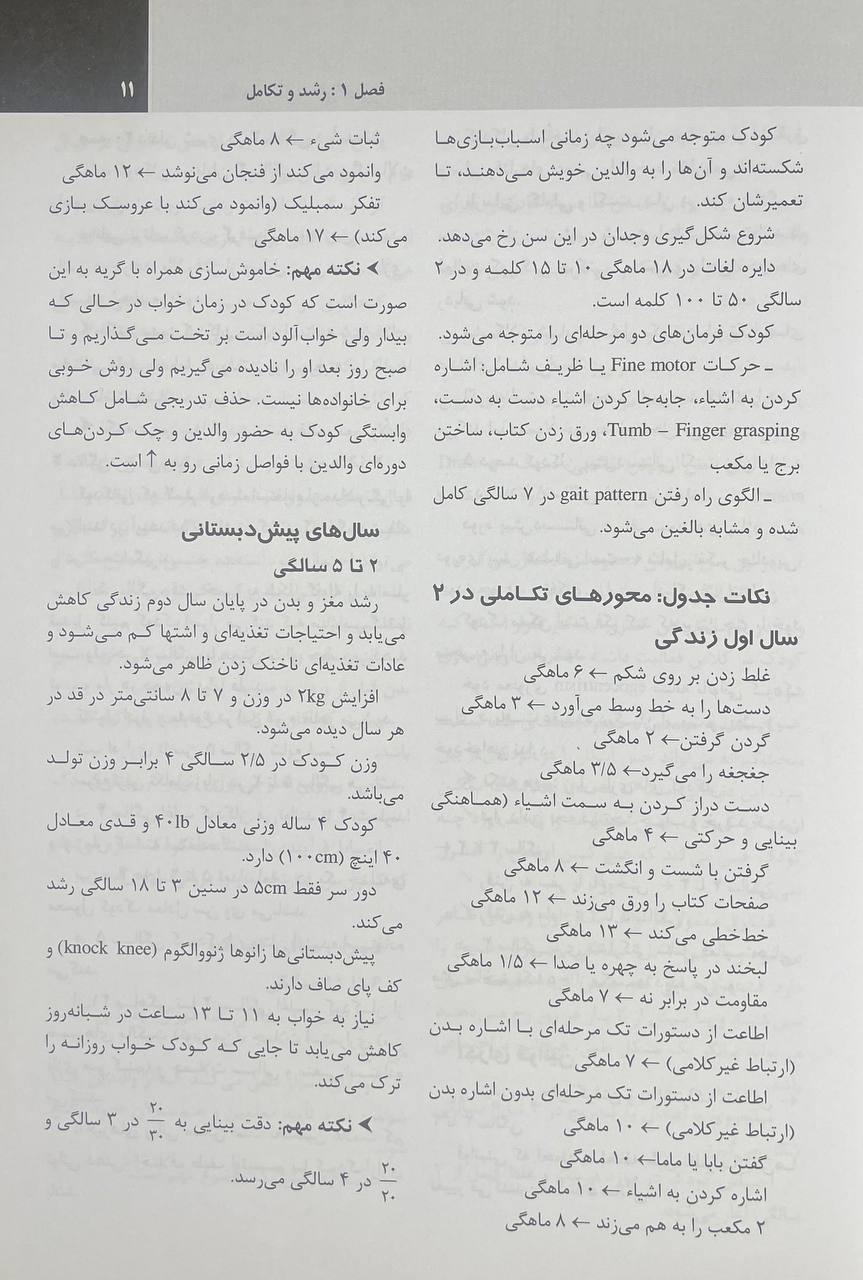 فصل ۱: رشد و تکامل
۱۱
کودک متوجه می‌شود چه زمانی اسباب‌بازی‌ها
شکسته‌اند و آن‌ها را به والدین خویش می‌دهند، تا
تعمیرشان کند.
شروع شکل‌گیری وجدان در این سن رخ می‌دهد.
دایره لغات در ۱۸ ماهگی ۱۰ تا ۱۵ کلمه و در ۲
سالگی ۵۰ تا ۱۰۰ کلمه است.
کودک فرمان‌های دو مرحله‌ای را متوجه می‌شود.
ـ حرکات Fine motor یا ظریف شامل: اشاره
کردن به اشیاء، جابه‌جا کردن اشیاء دست به دست،
Tumb – Finger grasping، ورق زدن کتاب، ساختن
برج یا مکعب
ـ الگوی راه رفتن gait pattern در ۷ سالگی کامل
شده و مشابه بالغین می‌شود.
نکات جدول: محورهای تکاملی در ۲
سال اول زندگی
غلط زدن بر روی شکم ← ۶ ماهگی
دست‌ها را به خط وسط می‌آورد ← ۳ ماهگی
گردن گرفتن← ۲ ماهگی
جغجغه را می‌گیرد← ۳/۵ ماهگی
دست دراز کردن به سمت اشیاء (هماهنگی
بینایی و حرکتی ← ۴ ماهگی
گرفتن با شست و انگشت ← ۸ ماهگی
صفحات کتاب را ورق می‌زند ← ۱۲ ماهگی
خط‌خطی می‌کند ← ۱۳ ماهگی
لبخند در پاسخ به چهره یا صدا ← ۱/۵ ماهگی
مقاومت در برابر نه ← ۷ ماهگی
اطاعت از دستورات تک مرحله‌ای با اشاره بدن
(ارتباط غیرکلامی) ← ۷ ماهگی
اطاعت از دستورات تک مرحله‌ای بدون اشاره بدن
(ارتباط غیرکلامی) ← ۱۰ ماهگی
گفتن بابا یا ماما← ۱۰ ماهگی
اشاره کردن به اشیاء ← ۱۰ ماهگی
۲ مکعب را به هم می‌زند ← ۸ ماهگی
ثبات شیء ← ۸ ماهگی
وانمود می‌کند از فنجان می‌نوشد ← ۱۲ ماهگی
تفکر سمبلیک (وانمود می‌کند با عروسک بازی
می‌کند) ← ۱۷ ماهگی
➤ نکته مهم: خاموش‌سازی همراه با گریه به این
صورت است که کودک در زمان خواب در حالی که
بیدار ولی خواب‌آلود است بر تخت می‌گذاریم و تا
صبح روز بعد او را نادیده می‌گیریم ولی روش خوبی
برای خانواده‌ها نیست. حذف تدریجی شامل کاهش
وابستگی کودک به حضور والدین و چک کردن‌های
دوره‌ای والدین با فواصل زمانی رو به ↑ است.
سال‌های پیش‌دبستانی
۲ تا ۵ سالگی
رشد مغز و بدن در پایان سال دوم زندگی کاهش
می‌یابد و احتیاجات تغذیه‌ای و اشتها کم می‌شود و
عادات تغذیه‌ای ناخنک زدن ظاهر می‌شود.
افزایش ۲kg در وزن و ۷ تا ۸ سانتی‌متر در قد در
هر سال دیده می‌شود.
وزن کودک در ۲/۵ سالگی ۴ برابر وزن تولد
می‌باشد.
کودک ۴ ساله وزنی معادل ۴۰lb و قدی معادل
۴۰ اینچ (۱۰۰cm) دارد.
دور سر فقط ۵cm در سنین ۳ تا ۱۸ سالگی رشد
می‌کند.
پیش‌دبستانی‌ها زانوها ژنووالگوم (knock knee) و
کف پای صاف دارند.
نیاز به خواب به ۱۱ تا ۱۳ ساعت در شبانه‌روز
کاهش می‌یابد تا جایی که کودک خواب روزانه را
ترک می‌کند.
➤ نکته مهم: دقت بینایی به ۲۰/۳۰ در ۳ سالگی و
۲۰/۲۰ در ۴ سالگی می‌رسد.